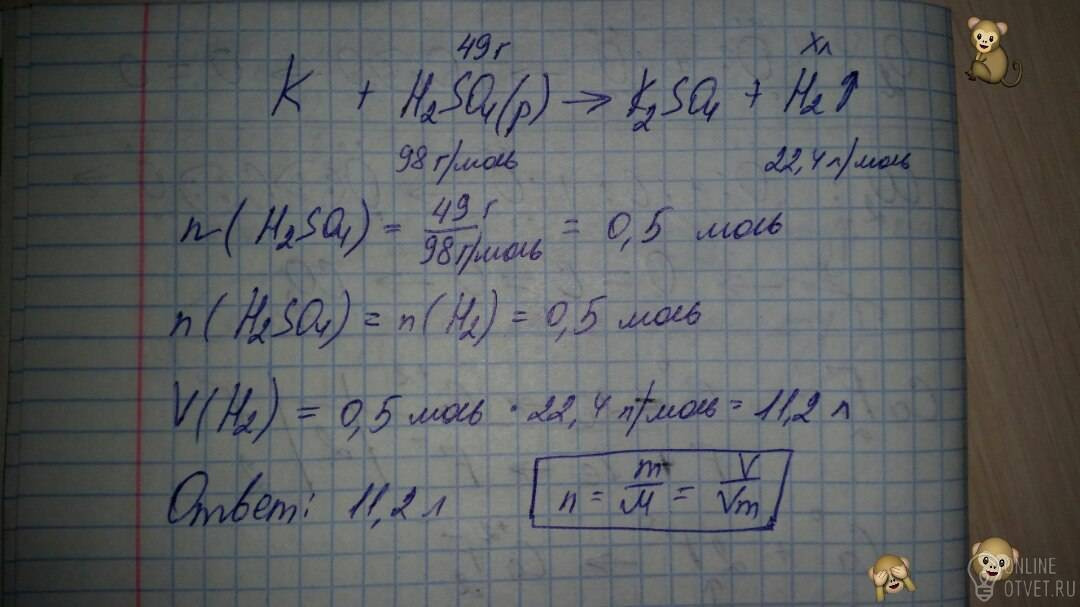 49 г Xл
K + H₂SO₄(р) → K₂SO₄ + H₂↑
98 г/моль 22,4 л/моль
n(H₂SO₄) = 49 г / 98 г/моль = 0,5 моль
n(H₂SO₄) = n(H₂) = 0,5 моль
V(H₂) = 0,5 моль · 22,4 л/моль = 11,2 л
Ответ: 11,2 л
n = m/M = V/Vm
ONLINE
OTVET.RU